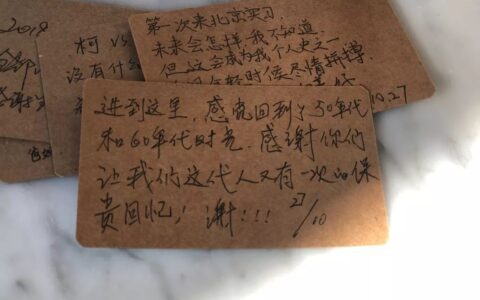 2019
感谢
柯 VS
没有什么
第一次来北京实习,
未来会怎样,我不知道.
但这会成为我个人史之一
年轻时候尽情拼搏.
10.27
进到这里,感觉回到了50年代
和60年代时光.感谢你们
让我们这代人又有一次的保
贵回忆!谢!!! 27/10